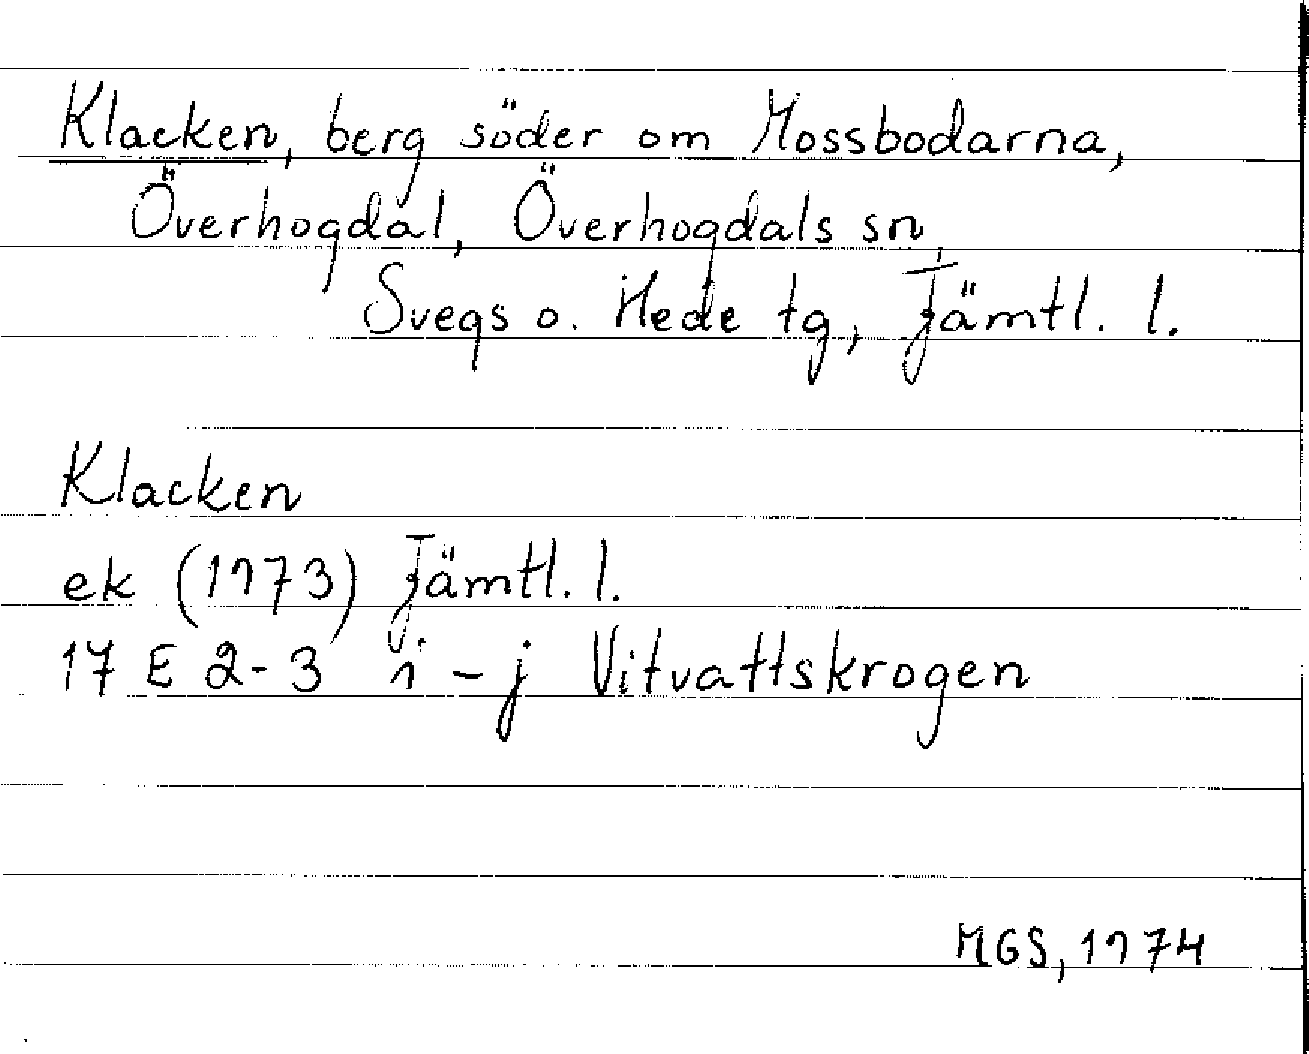 Klacken, berg söder om Mossbodarna,
Överhogdal, Överhogdals sn,
Svegs o. Hede tg, Jämtl. l.
Klacken
ek (1973) Jämtl. l.
17 E 2-3 i-j Vitvattskrogen
MGS, 1974